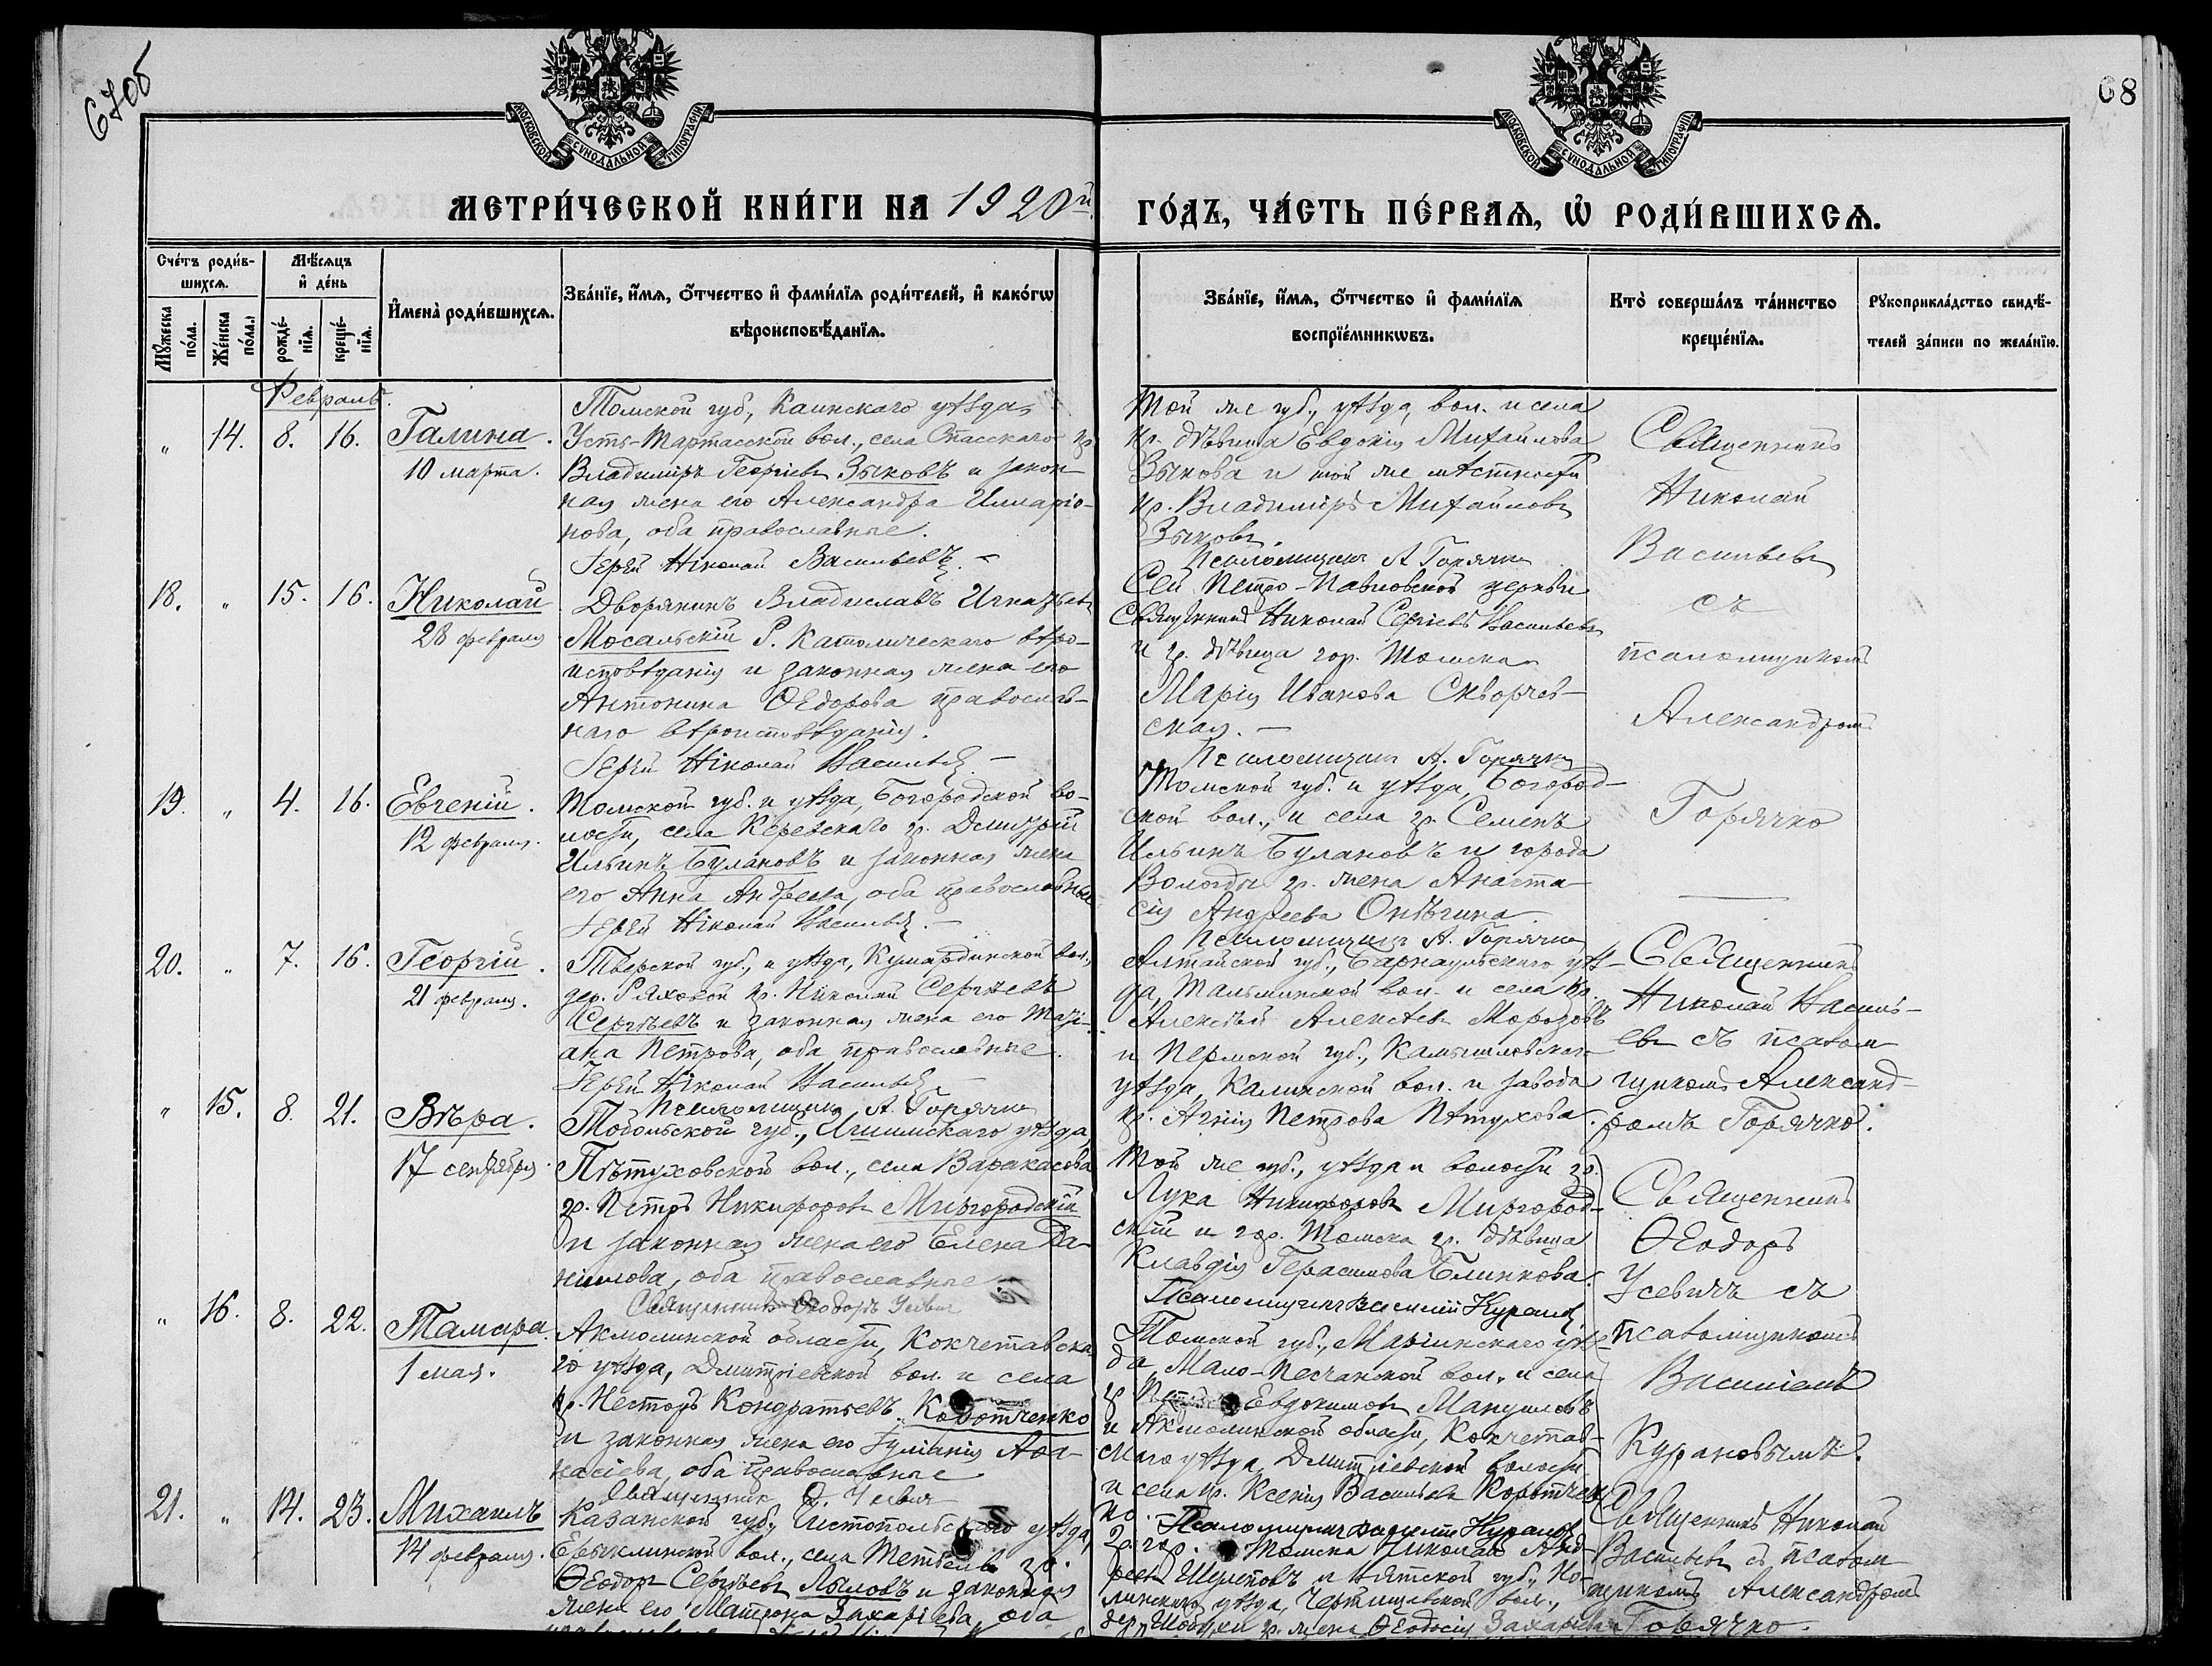 67об
68
МОСКОВСКОЙ СУНОДАЛЬНОЙ ТИПОГРАФІИ
МОСКОВСКОЙ СУНОДАЛЬНОЙ ТИПОГРАФІИ
МЕТРИ́ЧЕСКОЙ КНИ́ГИ НА 1920й
ГО́ДЪ, ЧА́СТЬ ПЕ́РВАѦ, Ѡ РОДИ́ВШИХСѦ.
Сче́тъ роди́в-
шихсѧ.
Мꙋжеска по́ла.
Же́нска по́ла.
Мѣ́сѧцъ
и де́нь
рожде́-
нїѧ.
креще́-
нїѧ.
Имена̀ роди́вшихсѧ.
Зва́нїе, и́мѧ, о́тчество и фами́лїѧ роди́телей, и како́гѡ
вѣроисповѣ́данїѧ.
Зва́нїе, и́мѧ, о́тчество и фами́лїѧ
воспрїе́мникѡвъ.
Кто̀ соверша́лъ та́инство
креще́нїѧ.
Рꙋкоприкла́дство свидѣ́-
телей за́писи по жела́нїю.
Февраль.
" 14. 8. 16.
Галина.
10 марта.
Томской губ., Каинскаго уѣзда,
Усть-Тартасской вол., села Спасскаго кр.
Владиміръ Георгіевъ Зыковъ и закон-
ная жена его Александра Иларіо-
нова, оба православные.
Іерей Николай Васильевъ. –
Той же губ., уѣзда, вол. и села
кр. дѣвица Евдокія Михайлова
Зыкова и той же мѣстности
кр. Владиміръ Михайловъ
Зыковъ.
Псаломщикъ А. Горячко
Священникъ
Николай
Васильевъ
съ
псаломщикомъ
Александромъ
Горячко
18. " 15. 16.
Николай
28 февраля
Дворянинъ Владиславъ Игнатьевъ
Мосальскій Р. Католическаго вѣро-
исповѣданія и законная жена его
Антонина Ѳедорова православ-
наго вѣроисповѣданія.
Іерей Николай Васильевъ. –
Сей Петро-Павловской церкви
Священникъ Николай Сергіевъ Васильевъ
и гр. дѣвица гор. Томска
Марія Иванова Скворчев-
ская. –
Псаломщикъ А. Горячко
19. " 4. 16.
Евгеній.
12 февраля.
Томской губ. и уѣзда, Богородской во-
лости, села Керевскаго гр. Дмитрій
Ильинъ Булановъ и законная жена
его Анна Андреева, оба православные
Іерей Николай Васильевъ. –
Томской губ. и уѣзда, Богород-
ской вол., и села гр. Семенъ
Ильинъ Булановъ и города
Вологды гр. жена Анаста-
сія Андреева Онѣгина.
Псаломщикъ А. Горячко
20. " 7. 16.
Георгій.
21 февраля.
Тверской губ., и уѣзда, Кумординской вол.,
дер. Ряховой гр. Николай Сергѣевъ
Сергѣевъ и законная жена его Тати-
ана Петрова, оба православные.
Іерей Николай Васильевъ. –
Псаломщикъ А. Горячко
Алтайской губ., Барнаульскаго уѣз-
да, Тальминской вол. и села кр.
Алексѣй Алексѣевъ Морозовъ
и Пермской губ., Камышловскаго
уѣзда, Калинской вол. и завода
кр. Агнія Петрова Пѣтухова.
Священникъ
Николай Василь-
евъ съ псалом-
щикомъ Александ-
ромъ Горячко.
" 15. 8. 21.
Вѣра.
17 сентября.
Тобольской губ., Ишимскаго уѣзда,
Пѣтуховской вол., села Варакасова
гр. Петръ Никифоровъ Миргородскій
и законная жена его Елена Да-
нилова, оба православные
Священникъ Ѳеодоръ Усевичъ
Той же губ., уѣзда и волости гр.
Лука Никифоровъ Миргород-
скій и гор. Томска гр. дѣвица
Клавдія Герасимова Блинкова.
Псаломщикъ Василій Курановъ
Священникъ
Ѳеодоръ
Усевичъ съ
псаломщикомъ
Василіемъ
Курановымъ.
" 16. 8. 22.
Тамара.
1 мая.
Акмолинской области, Кокчетавска-
го уѣзда, Дмитріевской вол. и села
гр. Несторъ Кондратьевъ Коротченко
и законная жена его Іуліанія Аѳа-
насіева, оба православные
Священникъ Ѳ. Усевичъ
Томской губ., Маріинскаго уѣз-
да, Мало-Песчанской вол. и села
гр. Евдокимовъ Мануиловъ
и Акмолинской области, Кокчетав-
скаго уѣзда, Дмитріевской волости
и села гр. Ксенія Васильева Коротчен-
ко.
Псаломщикъ Василій Курановъ
21. " 14. 23.
Михаилъ
14 февраля.
Казанской губ., Чистопольскаго уѣзда,
Ерыклинской вол., села гр.
Ѳеодоръ Сергѣевъ Лыловъ и законная
жена его Матрона Захаріева, оба
гор. Томска Николай Анд-
реевъ Шулеповъ и Вятской губ., Но-
линскаго уѣзда, Чертищевской вол.,
дер. гр. жена Ѳеодосія Захарьева
Священникъ Николай
Васильевъ съ псалом-
щикомъ Александромъ
Горячко.